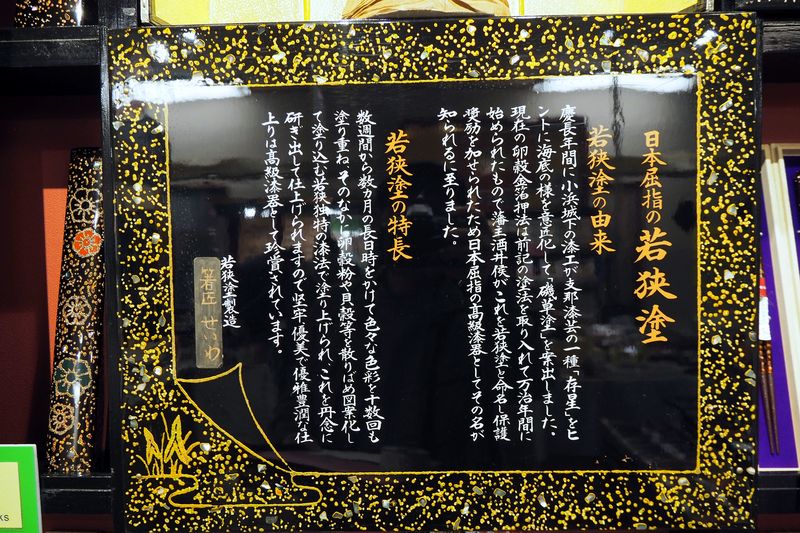 日本屈指の若狭塗
若狭塗の由来
慶長年間に小浜城下の漆工が支那漆芸の一種「存星」をヒ
ントに海底の様を意匠化して「磯草塗」を案出しました。
現在の卵殻金箔押法は前記の塗法を取り入れて万治年間に
始められたもので藩主酒井侯がこれを若狭塗と命名し保護
奨励を加せられたため日本屈指の高級漆器としてその名が
知られるに至りました。
若狭塗の特長
数週間から数ヶ月の長日時をかけて色々な色彩を十数回も
塗り重ね、そのなかに卵殻粉や貝殻等を散りばめ図案化し
て塗り込む若狭独特の漆法で塗り上げられ、これを丹念に
研ぎ出して仕上げられますので堅牢、優美で優雅豊潤な仕
上りは高級漆器として珍賞されています。
若狭塗製造
箸匠 せいわ
KS